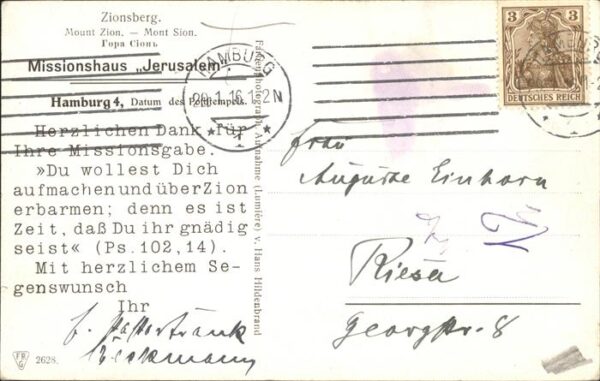 Zionsberg.
Mount Zion. — Mont Sion.
Гора Сіонъ.
Missionshaus „Jerusalem"
Hamburg 4, Datum des Poststempels.
Herzlichen Dank für
Ihre Missionsgabe.
»Du wollest Dich
aufmachen und über Zion
erbarmen; denn es ist
Zeit, daß Du ihr gnädig
seist« (Ps. 102, 14).
Mit herzlichem Se-
genswunsch
Ihr
2628.
Farbenphotograph. Aufnahme (Lumière) v. Hans Hildenbrand
HAMBURG
1.16.
2 N
* 1 *
3 3
DEUTSCHES REICH
Frau
Auguste Einhorn
Riesa
Georgstr. 8